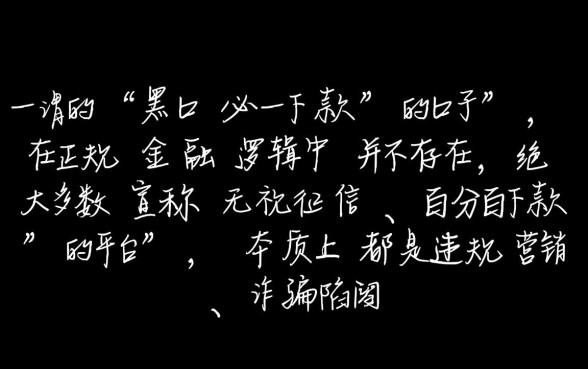 一谓的 “黑口 必一下款” 的口子”，
在正规 金融 逻辑中 并不存在，绝
大多数 宣称 无视征信 、百分百下款
” 的平台”， 本质上 都是违规 营销
、诈骗陷阱